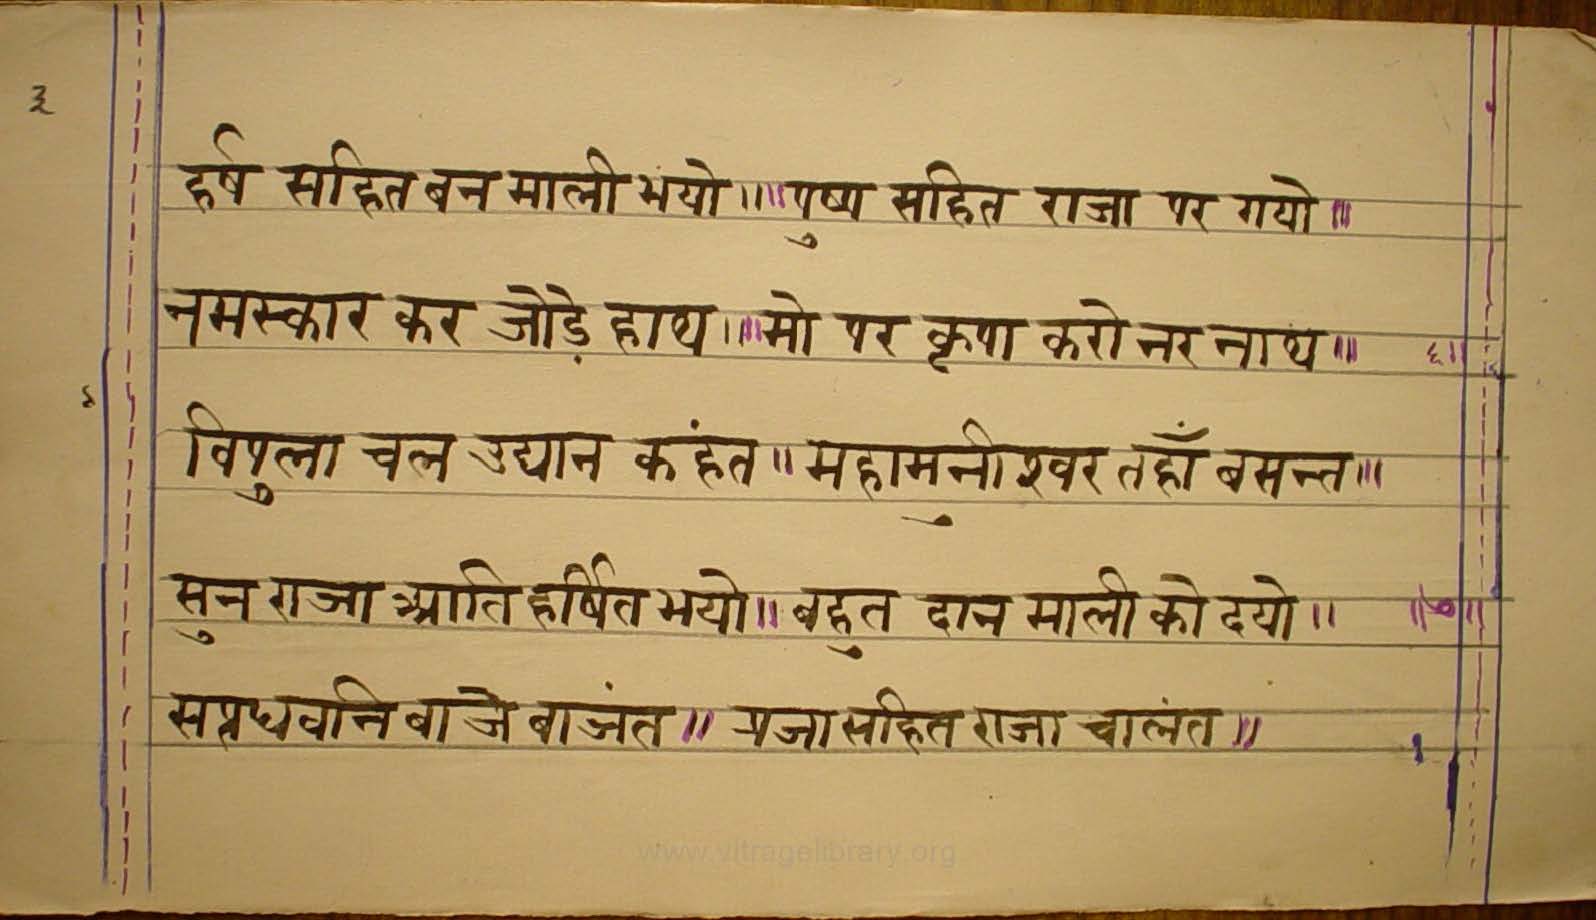 ३
हर्ष सहित बन माली भयो ॥ पुष्प सहित राजा पर गयो ॥
नमस्कार कर जोड़े हाथ ॥ मो पर कृपा करो नर नाथ ॥ ६॥
विपुला चल उद्यान कहंत ॥ महामुनीश्वर तहाँ बसन्त ॥
सुन राजा अति हर्षित भयो ॥ बहुत दान माली को दयो ॥ ॥७॥
सप्तध्वनि बाजे बाजंत ॥ प्रजा सहित राजा चालंत ॥
www.vitragelibrary.org